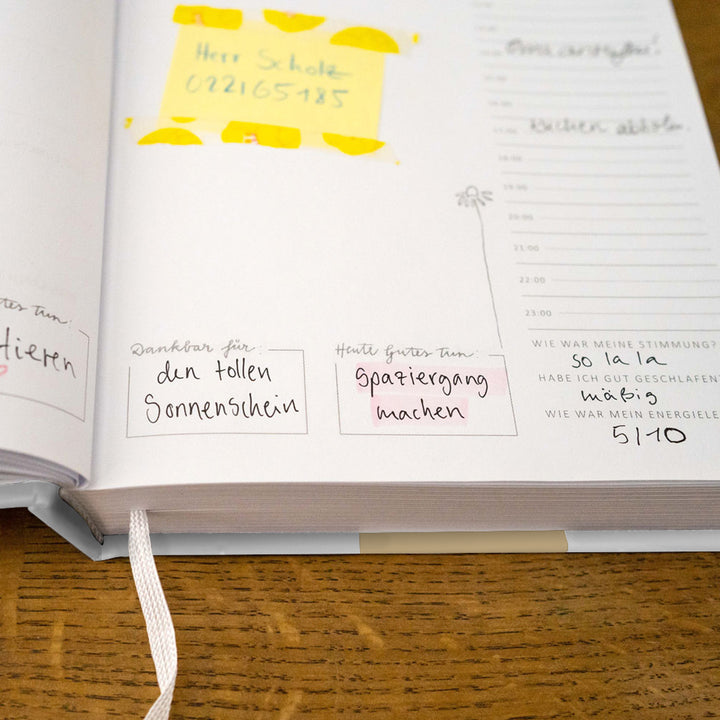 Herr Scholz
022165185
Oma anrufen!
Kuchen abholen.
18:00
19:00
20:00
21:00
22:00
23:00
Gutes tun:
tieren
Dankbar für:
den tollen
Sonnenschein
Heute Gutes tun:
Spaziergang
machen
WIE WAR MEINE STIMMUNG?
so la la
HABE ICH GUT GESCHLAFEN?
mäßig
WIE WAR MEIN ENERGIELE
5/10